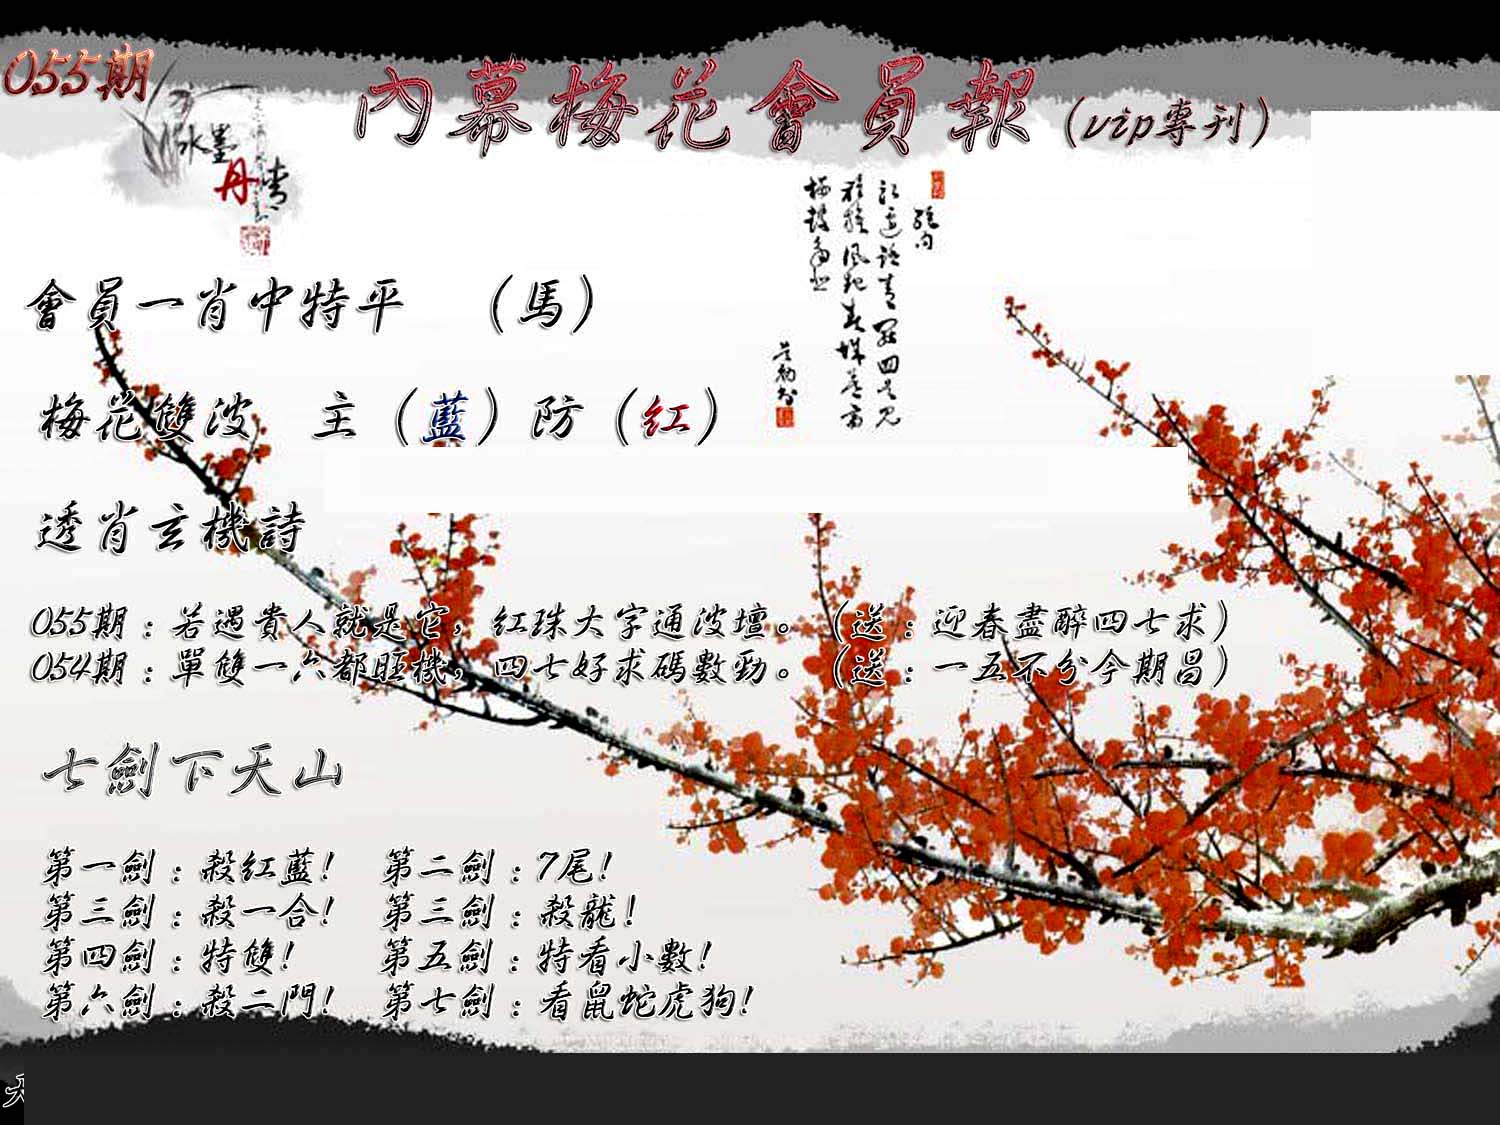 055期
內幕梅花會員報(vip專刊)
水墨
丹青
會員一肖中特平 (馬)
梅花雙波 主(藍)防(紅)
透肖玄機詩
055期:若遇貴人就是它,紅珠大字通波壇。(送:迎春盡醉四七求)
054期:單雙一六都旺機,四七好求碼數勁。(送:一五不兮今期昌)
七劍下天山
第一劍:殺紅藍! 第二劍:7尾!
第三劍:殺一合! 第三劍:殺龍!
第四劍:特雙! 第五劍:特看小數!
第六劍:殺二門! 第七劍:看鼠蛇虎狗!